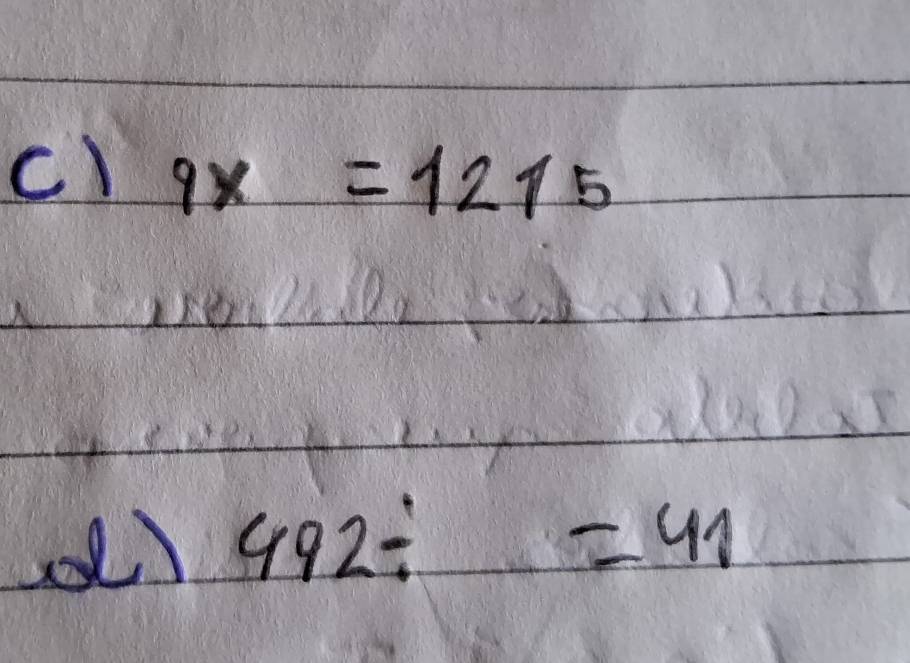 c) 9x =1215
d) 492÷ =41